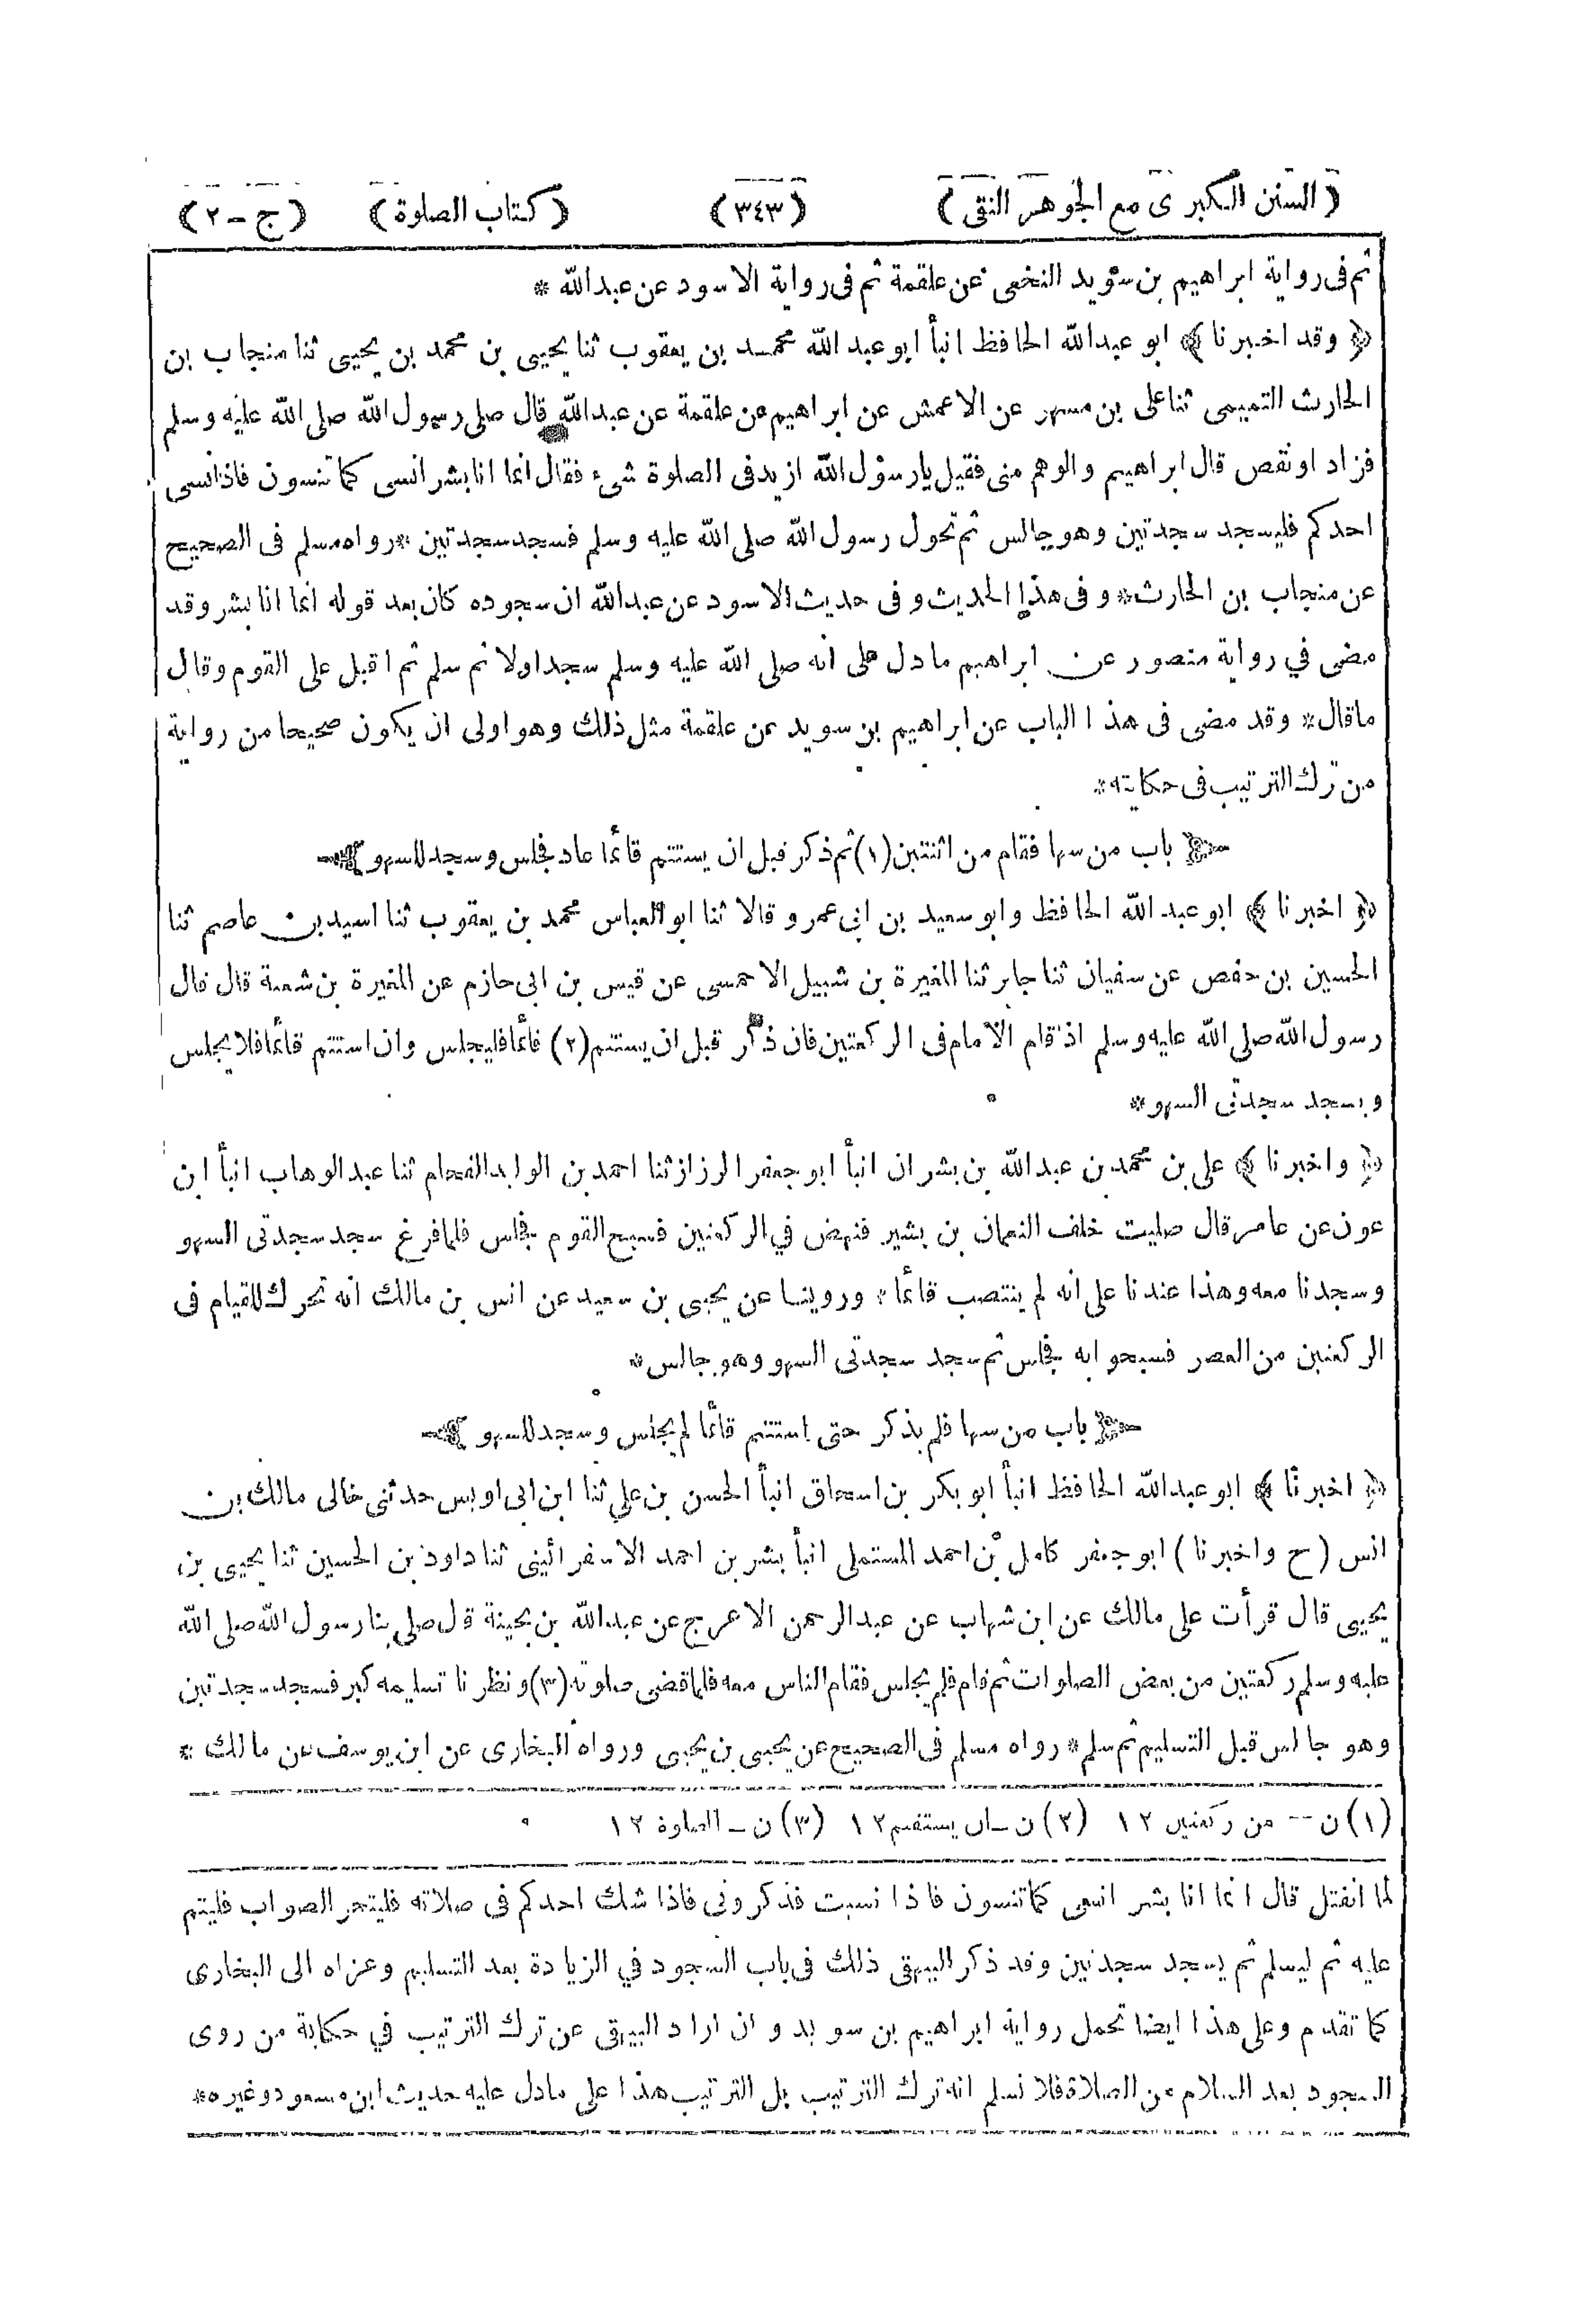 (السنن الكبرى مع الجوهر النقى) (٣٤٣) (كتاب الصلوة) (ج - ٢)
ثم فى رواية ابراهيم بن سويد النخعى عن علقمة ثم فى رواية الاسود عن عبد الله *
﴿ وقد اخبرنا ﴾ ابو عبد الله الحافظ انبأ ابو عبد الله محمد بن يعقوب ثنا يحيى بن محمد بن يحيى ثنا منجاب بن
الحارث التميمى ثنا على بن مسهر عن الاعمش عن ابراهيم عن علقمة عن عبد الله قال صلى رسول الله صلى الله عليه وسلم
فزاد او نقص قال ابراهيم والوهم منى فقيل يا رسول الله ازيد فى الصلوة شىء فقال انما انا بشر انسى كما تنسون فاذا نسى
احدكم فليسجد سجدتين وهو جالس ثم تحول رسول الله صلى الله عليه وسلم فسجد سجدتين * رواه مسلم فى الصحيح
عن منجاب بن الحارث * وفى هذا الحديث وفى حديث الاسود عن عبد الله ان سجوده كان بعد قوله انما انا بشر وقد
مضى في رواية منصور عن ابراهيم ما دل على انه صلى الله عليه وسلم سجد اولا ثم سلم ثم اقبل على القوم وقال
ما قال * وقد مضى فى هذا الباب عن ابراهيم بن سويد عن علقمة مثل ذلك وهو اولى ان يكون صحيحا من رواية
من ترك الترتيب فى حكايته *
باب من سها فقام من اثنتين (١) ثم ذكر قبل ان يستتم قائما عاد فجلس وسجد للسهو
﴿ اخبرنا ﴾ ابو عبد الله الحافظ وابو سعيد بن ابى عمرو قالا ثنا ابو العباس محمد بن يعقوب ثنا اسيد بن عاصم ثنا
الحسين بن حفص عن سفيان ثنا جابر ثنا المغيرة بن شبيل الاحمسى عن قيس بن ابى حازم عن المغيرة بن شعبة قال قال
رسول الله صلى الله عليه وسلم اذ قام الامام فى الركعتين فان ذكر قبل ان يستتم (٢) قائما فليجلس وان استتم قائما فلا يجلس
ويسجد سجدتى السهو *
﴿ واخبرنا ﴾ على بن محمد بن عبد الله بن بشران انبأ ابو جعفر الرزاز ثنا احمد بن الوليد الفحام ثنا عبد الوهاب انبأ ابن
عون عن عامر قال صليت خلف النعمان بن بشير فنهض في الركعتين فسبح القوم فجلس فلما فرغ سجد سجدتى السهو
وسجدنا معه وهذا عندنا على انه لم ينتصب قائما * وروينا عن يحيى بن سعيد عن انس بن مالك انه تحرك للقيام فى
الركعتين من العصر فسبحوا به فجلس ثم سجد سجدتى السهو وهو جالس *
باب من سها فلم يذكر حتى استتم قائما لم يجلس وسجد للسهو
﴿ اخبرنا ﴾ ابو عبد الله الحافظ انبأ ابو بكر بن اسحاق انبأ الحسن بن علي ثنا ابن ابى اويس حدثنى خالى مالك بن
انس (ح واخبرنا) ابو جعفر كامل بن احمد المستملى انبأ بشر بن احمد الاسفرائينى ثنا داود بن الحسين ثنا يحيى بن
يحيى قال قرأت على مالك عن ابن شهاب عن عبد الرحمن الاعرج عن عبد الله بن بحينة قال صلى بنا رسول الله صلى الله
عليه وسلم ركعتين من بعض الصلوات ثم قام فلم يجلس فقام الناس معه فلما قضى صلوته (٣) ونظرنا تسليمه كبر فسجد سجدتين
وهو جالس قبل التسليم ثم سلم * رواه مسلم فى الصحيح عن يحيى بن يحيى ورواه البخارى عن ابن يوسف عن مالك *
(١) ن -- من ركعتين ١٢ (٢) ن - ان يستقيم ١٢ (٣) ن - الصلوة ١٢
لما انفتل قال انما انا بشر انسى كما تنسون فاذا نسيت فذكرونى فاذا شك احدكم فى صلاته فليتحر الصواب فليتم
عليه ثم ليسلم ثم يسجد سجدتين وقد ذكر البيهقى ذلك فى باب السجود في الزيادة بعد التسليم وعزاه الى البخارى
كما تقدم وعلى هذا ايضا تحمل رواية ابراهيم بن سويد و ان اراد البيهقى عن ترك الترتيب في حكاية من روى
السجود بعد السلام من الصلاة فلا نسلم انه ترك الترتيب بل الترتيب هذا على مادل عليه حديث ابن مسعود وغيره *